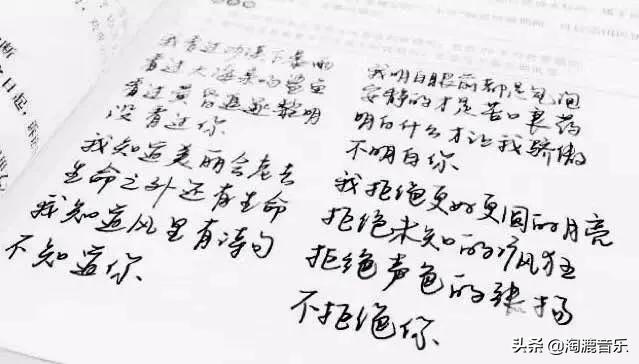 我看过沙漠下暴雨
看过大海亲吻鲨鱼
看过黄昏追逐黎明
没看过你
我知道美丽会老去
生命之外还有生命
我知道风里有诗句
不知道你
我明白眼前都是气泡
安静的才是苦口良药
明白什么才让我骄傲
不明白你
我拒绝更好更圆的月亮
拒绝未知的疯狂
拒绝声色的张扬
不拒绝你
日起，
头条 @淘漉音乐